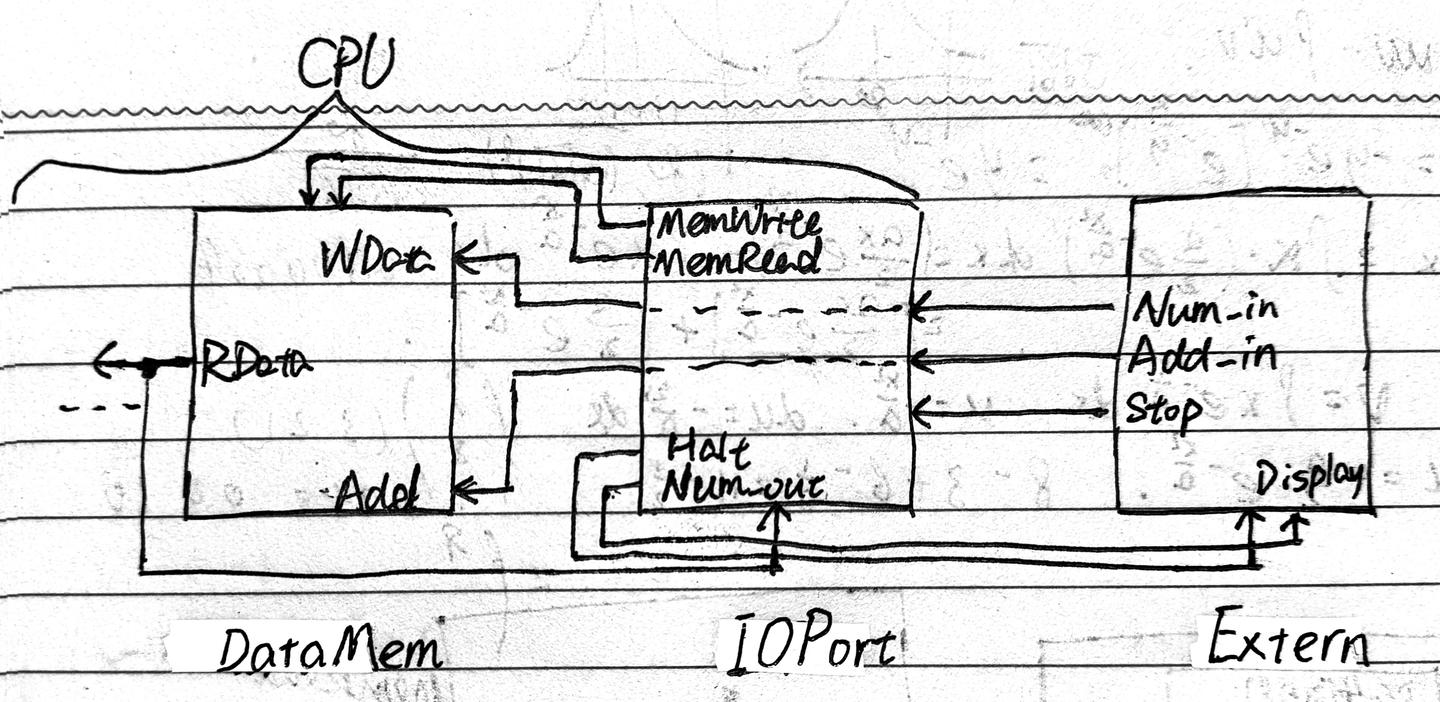 CPU
WData
RData
Add
MemWrite
MemRead
Halt
Num_out
Num_in
Add_in
Stop
Display
DataMem
IOPort
Extern